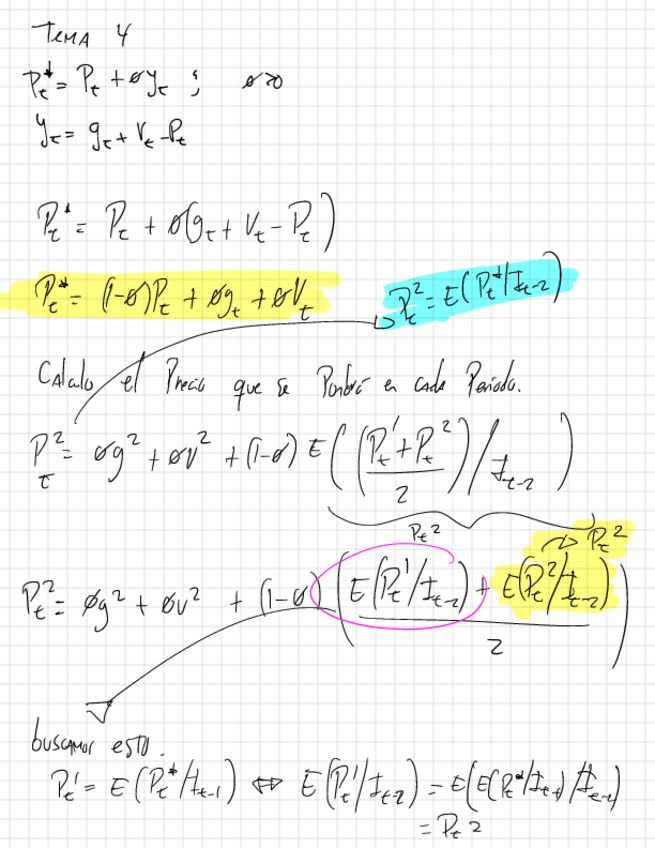 TEMA 4
P_t^* = P_t + ø y_t ; ø>0
y_t = g_t + V_t - P_t
P_t^* = P_t + ø(g_t + V_t - P_t)
P_t^* = (1-ø)P_t + øg_t + øV_t
P_t^2 = E(P_t^*/I_{t-2})
Calculo el Precio que se Pondrá en cada Periodo.
P_t^2 = øg^2 + øv^2 + (1-ø) E((P_t^1 + P_t^2)/2)/I_{t-2})
P_t^2
→ P_t^2
P_t^2 = øg^2 + øv^2 + (1-ø) ((E(P_t^1/I_{t-2}) + E(P_t^2/I_{t-2}))/2)
buscamos esto.
P_t^1 = E(P_t^*/I_{t-1}) ⇔ E(P_t^1/I_{t-2}) = E(E(P_t^*/I_{t-1})/I_{t-2})
= P_t 2